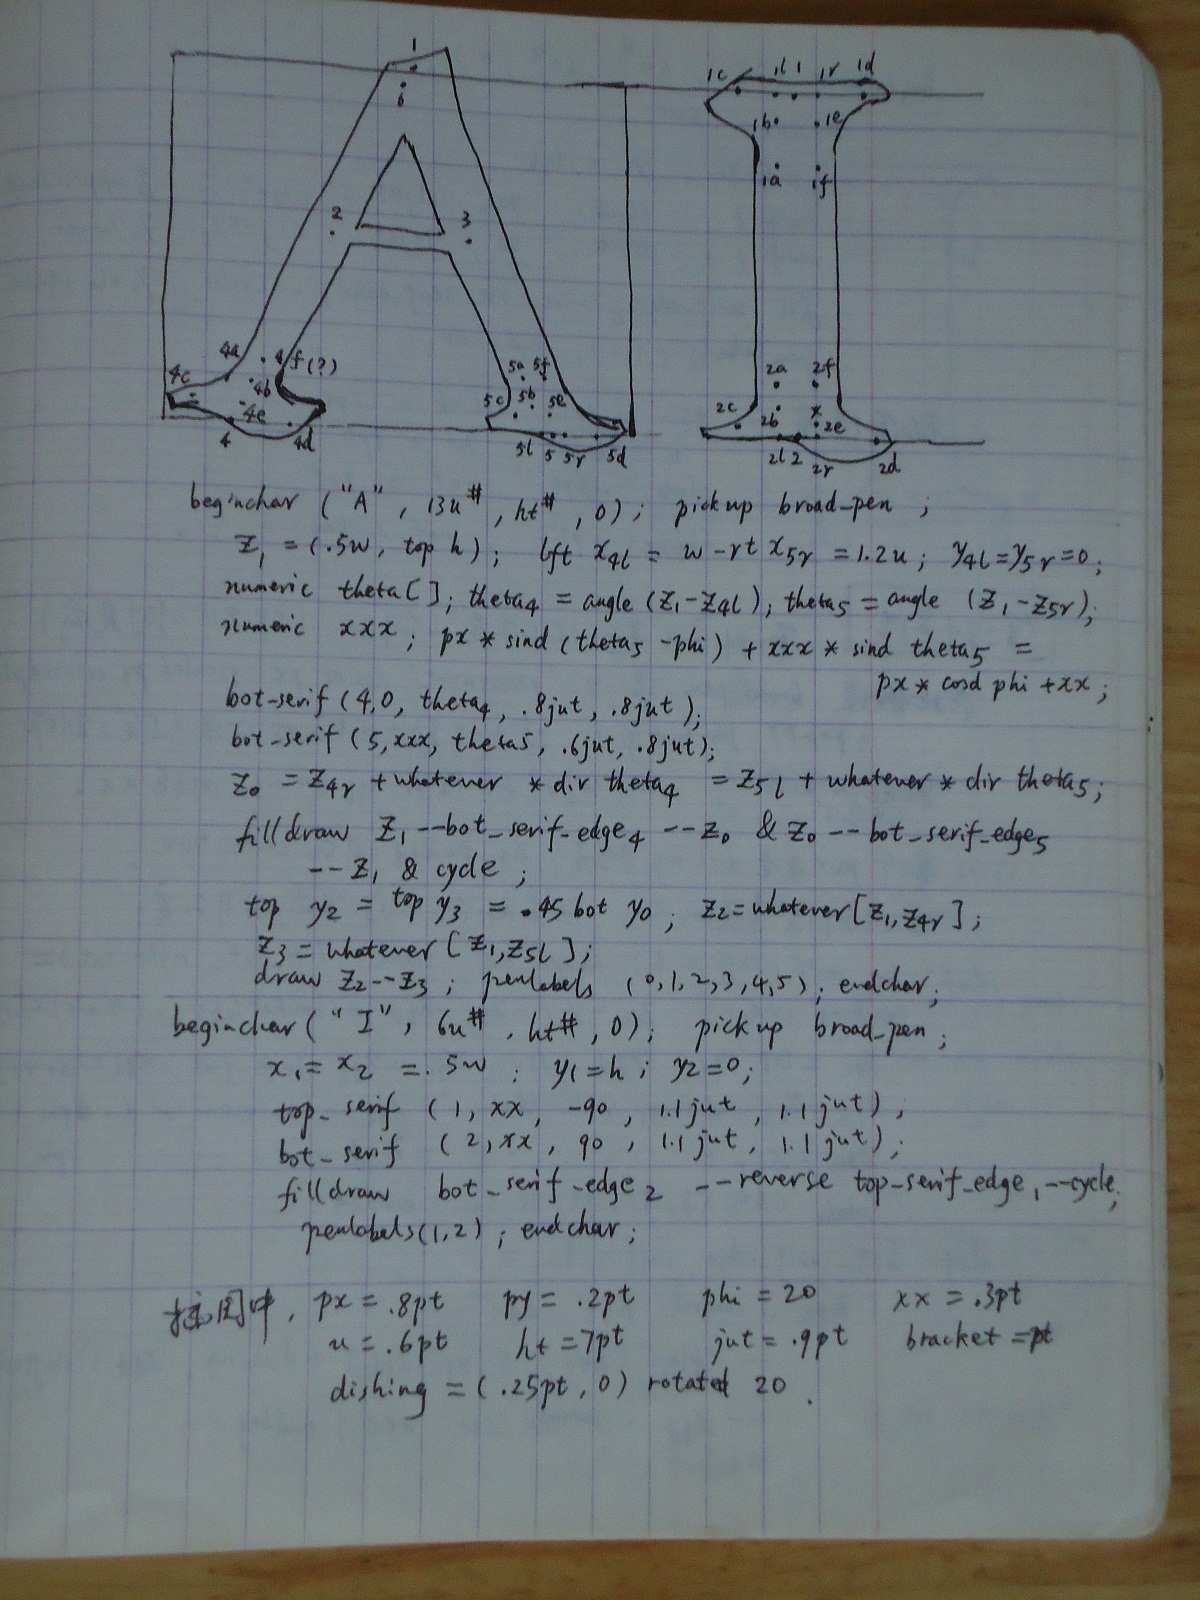 1
0
2
3
4a
4f(?)
4b
4c
4e
4
4d
5a 5f
5c 5b 5e
5l 5 5r 5d
1c 1l 1 1r 1d
1b 1e
1a 1f
2a 2f
2c 2b * 2e
2l 2 2r 2d
beginchar ("A", 13u#, ht#, 0); pickup broad_pen;
z1 = (.5w, top h); lft x4l = w - rt x5r = 1.2u; y4l = y5r = 0;
numeric theta[]; theta4 = angle (z1 - z4l); theta5 = angle (z1 - z5r);
numeric xxx; px * sind (theta5 - phi) + xxx * sind theta5 =
px * cosd phi + xx;
bot-serif (4, 0, theta4, .8jut, .8jut);
bot-serif (5, xxx, theta5, .6jut, .8jut);
z0 = z4r + whatever * dir theta4 = z5l + whatever * dir theta5;
filldraw z1 --bot_serif_edge4 --z0 & z0 -- bot_serif_edge5
-- z1 & cycle;
top y2 = top y3 = .45 bot y0; z2 = whatever[z1, z4r];
z3 = whatever [z1, z5l];
draw z2 -- z3; penlabels (0,1,2,3,4,5); endchar;
beginchar ("I", 6u#, ht#, 0); pickup broad_pen;
x1 = x2 = .5w; y1 = h; y2 = 0;
top_serif (1, xx, -90, 1.1jut, 1.1jut);
bot_serif (2, xx, 90, 1.1jut, 1.1jut);
filldraw bot_serif_edge2 --reverse top_serif_edge1 --cycle;
penlabels(1,2); endchar;
插图中, px = .8pt py = .2pt phi = 20 xx = .3pt
u = .6pt ht = 7pt jut = .9pt bracket = pt
dishing = (.25pt, 0) rotated 20.